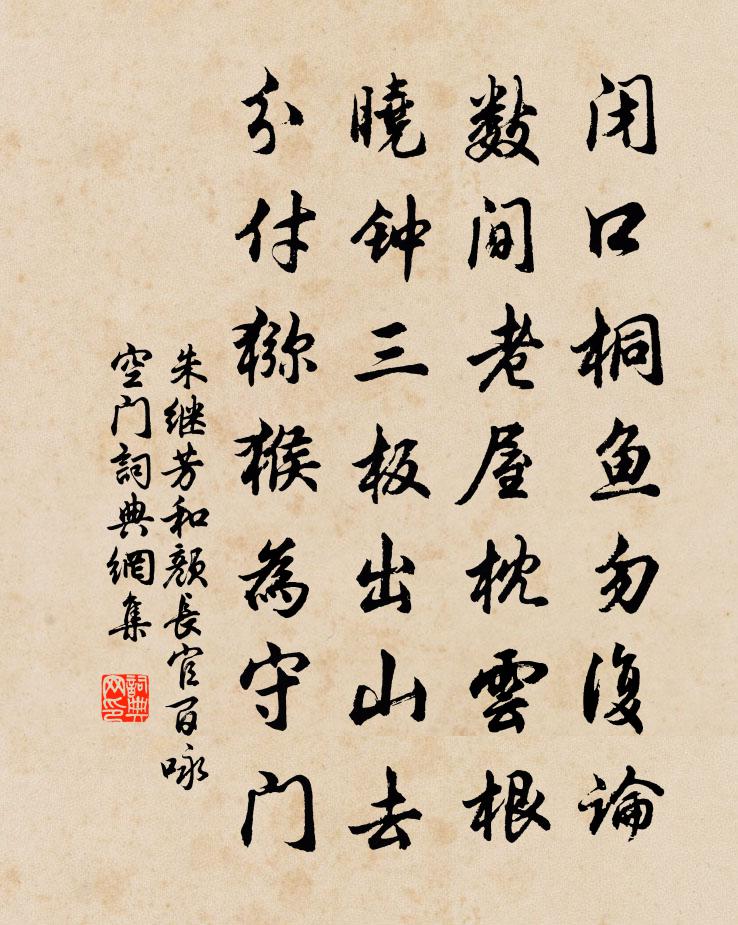 闭口桐鱼勿復論
数间老屋枕雲根
曉钟三板出山去
分付猕猴為守门
朱继芳和颜長官百咏
空门詞典網集
詞典网印